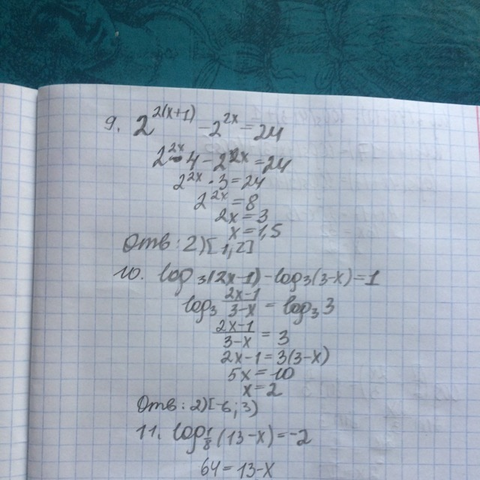 9. 2^{2(x+1)} - 2^{2x} = 24
2^{2x} · 4 - 2^{2x} = 24
2^{2x} · 3 = 24
2^{2x} = 8
2x = 3
x = 1,5
Отв: 2) [1, 2]
10. log₃(2x-1) - log₃(3-x) = 1
log₃ \frac{2x-1}{3-x} = log₃ 3
\frac{2x-1}{3-x} = 3
2x-1 = 3(3-x)
5x = 10
x = 2
Отв: 2) [-6; 3)
11. log_{1/8}(13-x) = -2
64 = 13-x